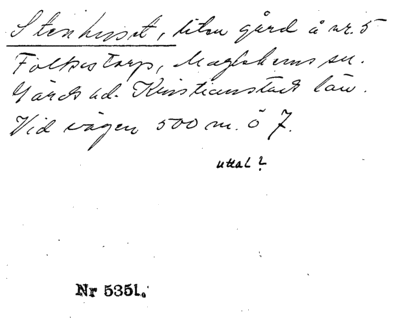 Stenhuset, liten gård å nr. 5
Folkestorp, Maglehems sn.
Gärds hd. Kristianstads län.
Vid vägen 500 m. ö 7.
uttal?
Nr 5351.